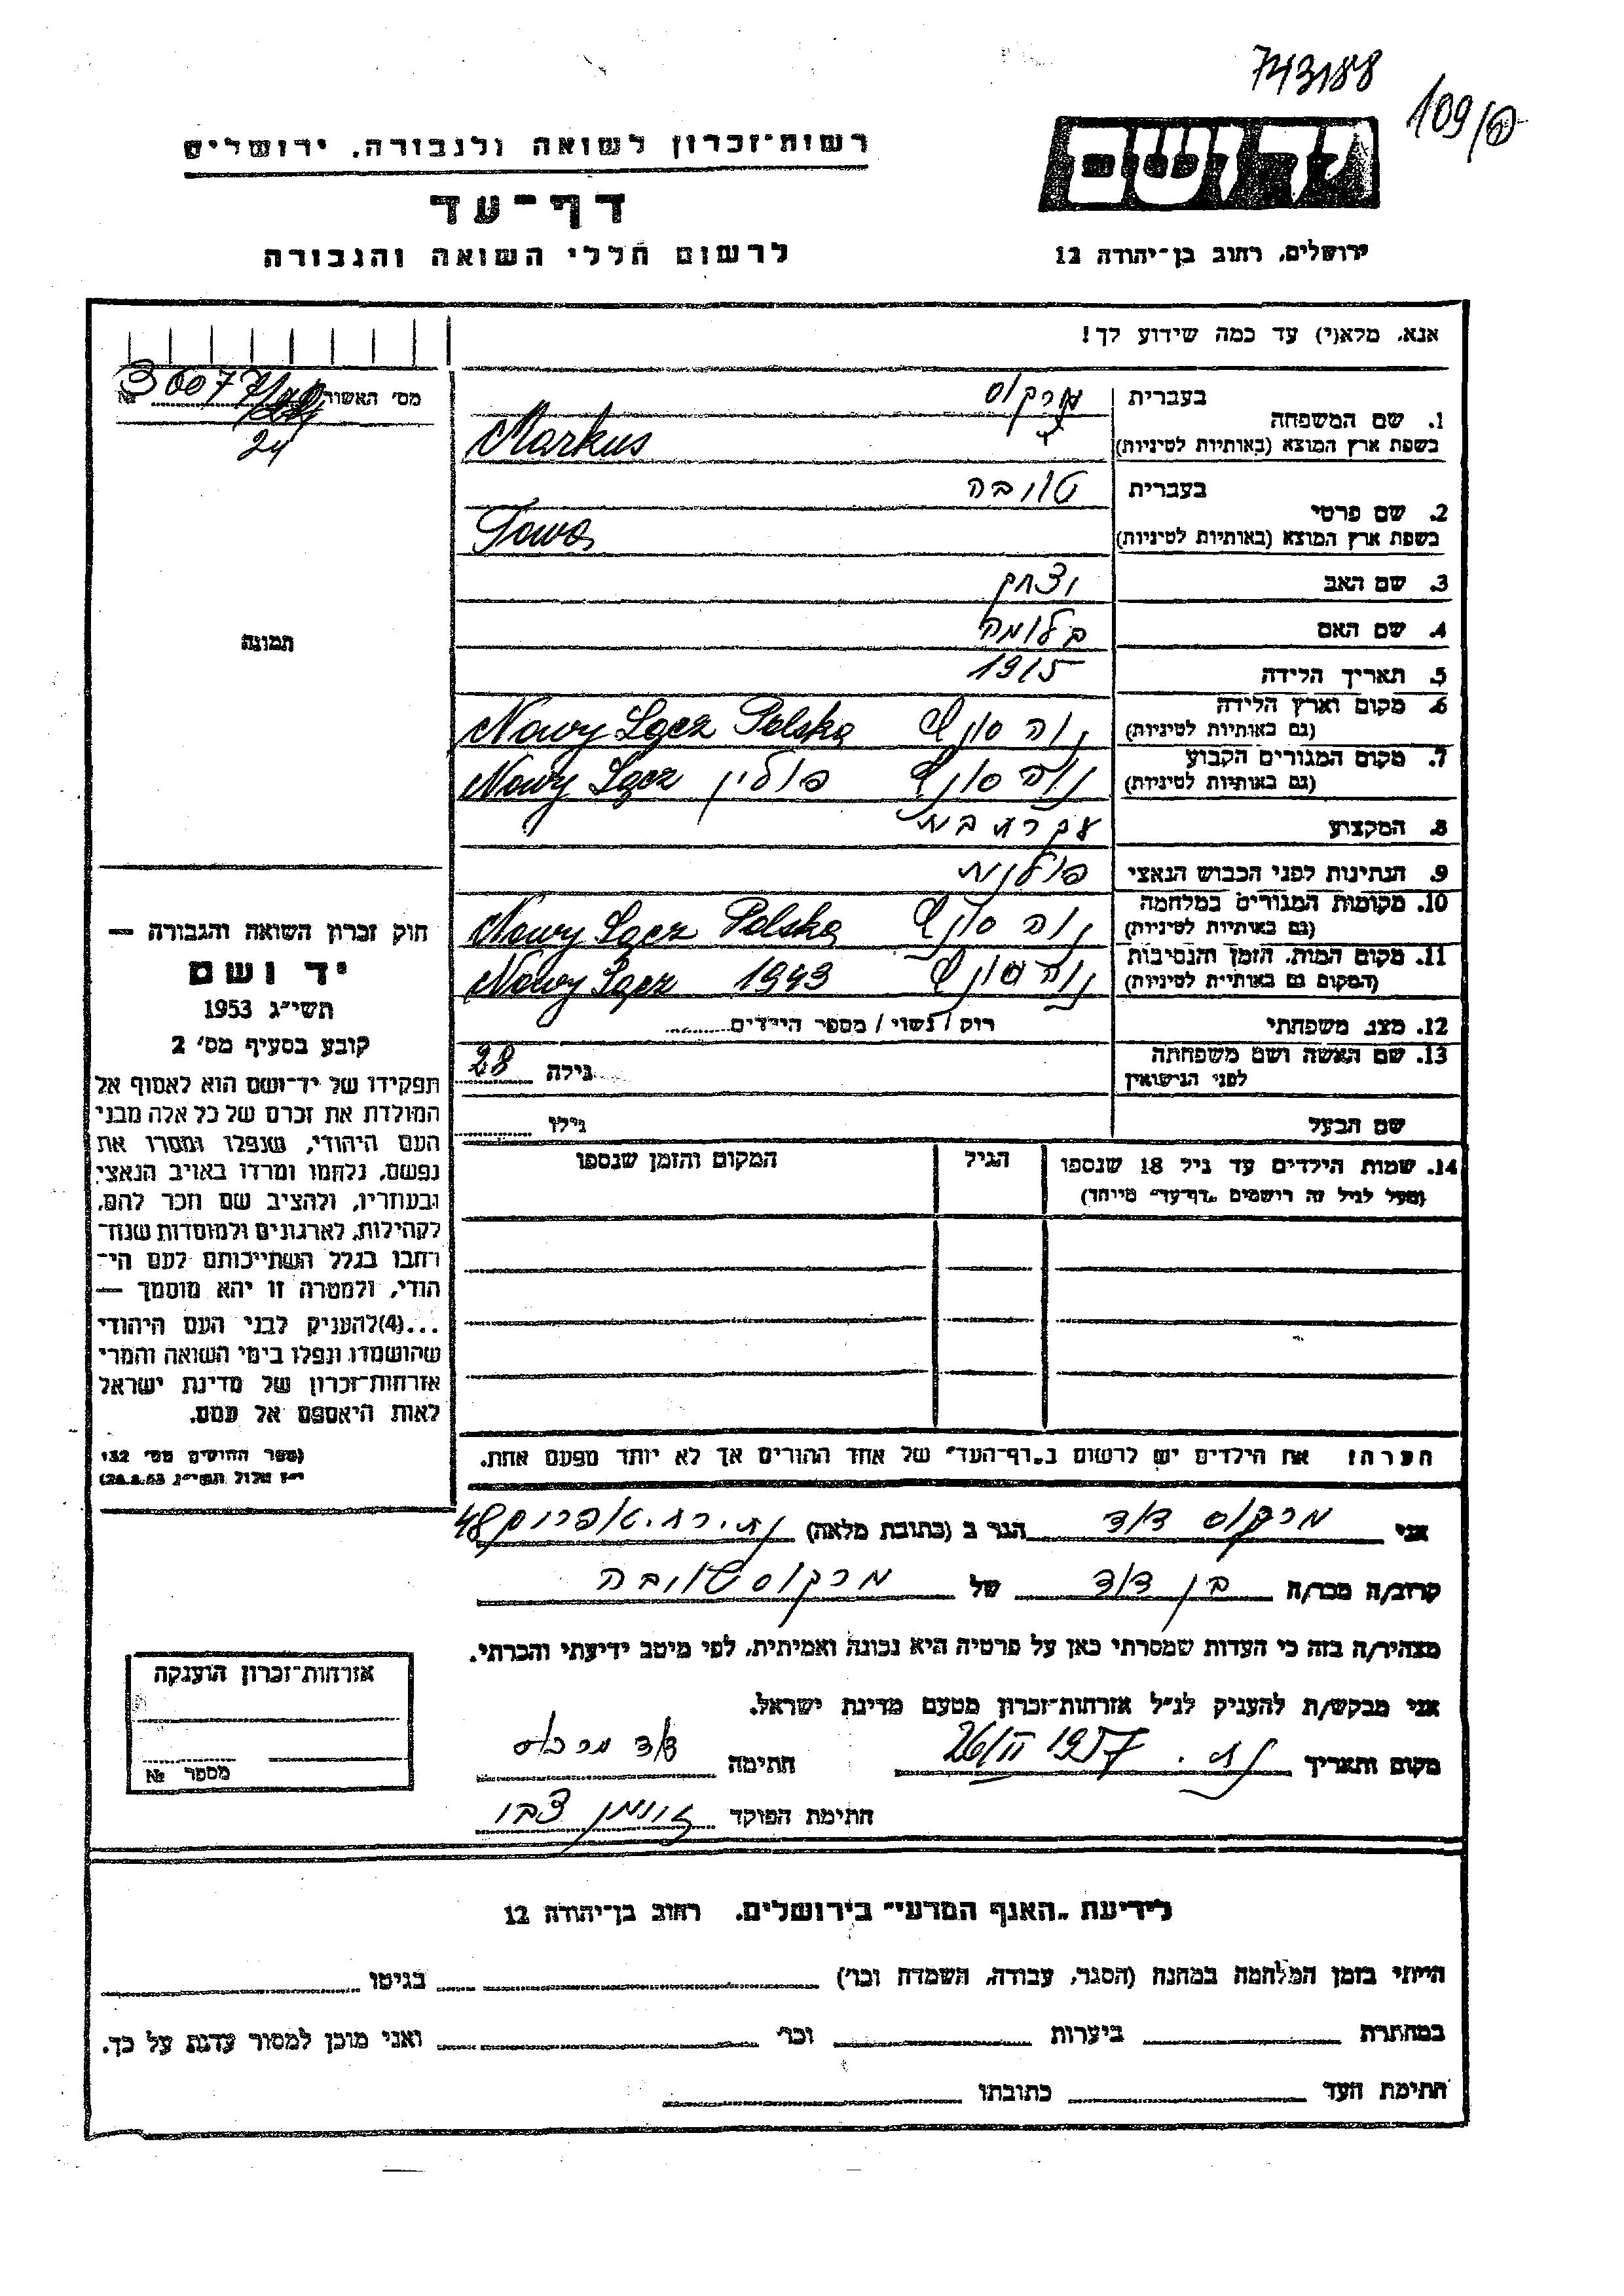 743188
109/פ
רשות־זכרון לשואה ולגבורה, ירושלים
יד ושם
דף־עד
לרשום חללי השואה והגבורה
ירושלים, רחוב בן־יהודה 12
אנא, מלא(י) עד כמה שידוע לך!
מס' האשור
№ 30077
24
1. שם המשפחה
בעברית מרקוס
בשפת ארץ המוצא (באותיות לטיניות) Markus
2. שם פרטי
בעברית טובה
בשפת ארץ המוצא (באותיות לטיניות) Towa
3. שם האב יצחק
4. שם האם בלומה
5. תאריך הלידה 1915
6. מקום וארץ הלידה
(גם באותיות לטיניות) Nowy Sącz Polska
7. מקום המגורים הקבוע
(גם באותיות לטיניות) פולין Nowy Sącz
8. המקצוע עקרת בית
9. הנתינות לפני הכבוש הנאצי פולנית
10. מקומות המגורים במלחמה
(גם באותיות לטיניות) Nowy Sącz Polska
11. מקום המות, הזמן והנסיבות
(המקום גם באותיות לטיניות) Nowy Sącz 1943
12. מצב משפחתי רוק / נשוי / מספר הילדים
13. שם האשה ושם משפחתה
לפני הנישואין
גילה 28
שם הבעל גילו
14. שמות הילדים עד גיל 18 שנספו
(מעל לגיל זה רושמים „דף־עד" מיוחד)
הגיל
המקום והזמן שנספו
הערה: את הילדים יש לרשום ב„דף־העד" של אחד ההורים אך לא יותר מפעם אחת.
תמונה
חוק זכרון השואה והגבורה —
יד ושם
תשי"ג 1953
קובע בסעיף מס' 2
תפקידו של יד־ושם הוא לאסוף אל
המולדת את זכרם של כל אלה מבני
העם היהודי, שנפלו ומסרו את
נפשם, נלחמו ומרדו באויב הנאצי
ובעוזריו, ולהציב שם וזכר להם,
לקהילות, לארגונים ולמוסדות שנח־
רחבו בגלל השתייכותם לעם הי־
הודי, ולמטרה זו יהא מוסמך —
...(4)להעניק לבני העם היהודי
שהושמדו ונפלו בימי השואה והמרי
אזרחות־זכרון של מדינת ישראל
לאות היאספם אל עמם.
(ספר החוקים מס' 132
י"ז אלול תשי"ג 28.8.53)
אני מרקוס דוד הגר ב (כתובת מלאה) 48
קרוב/ה מכר/ה בן דוד של מרקוס טובה
מצהיר/ה בזה כי העדות שמסרתי כאן על פרטיה היא נכונה ואמיתית, לפי מיטב ידיעתי והכרתי.
אני מבקש/ת להעניק לנ"ל אזרחות־זכרון מטעם מדינת ישראל.
מקום ותאריך 26/II 1957 חתימה דוד מרכוס
חתימת הפוקד צבי
אזרחות־זכרון הוענקה
מספר №
לידיעת „האגף המדעי" בירושלים, רחוב בן־יהודה 12
הייתי בזמן המלחמה במחנה (הסגר, עבודה, השמדה וכו') בגיטו
במחתרת ביערות וכו' ואני מוכן למסור עדות על כך.
חתימת העד כתובתו